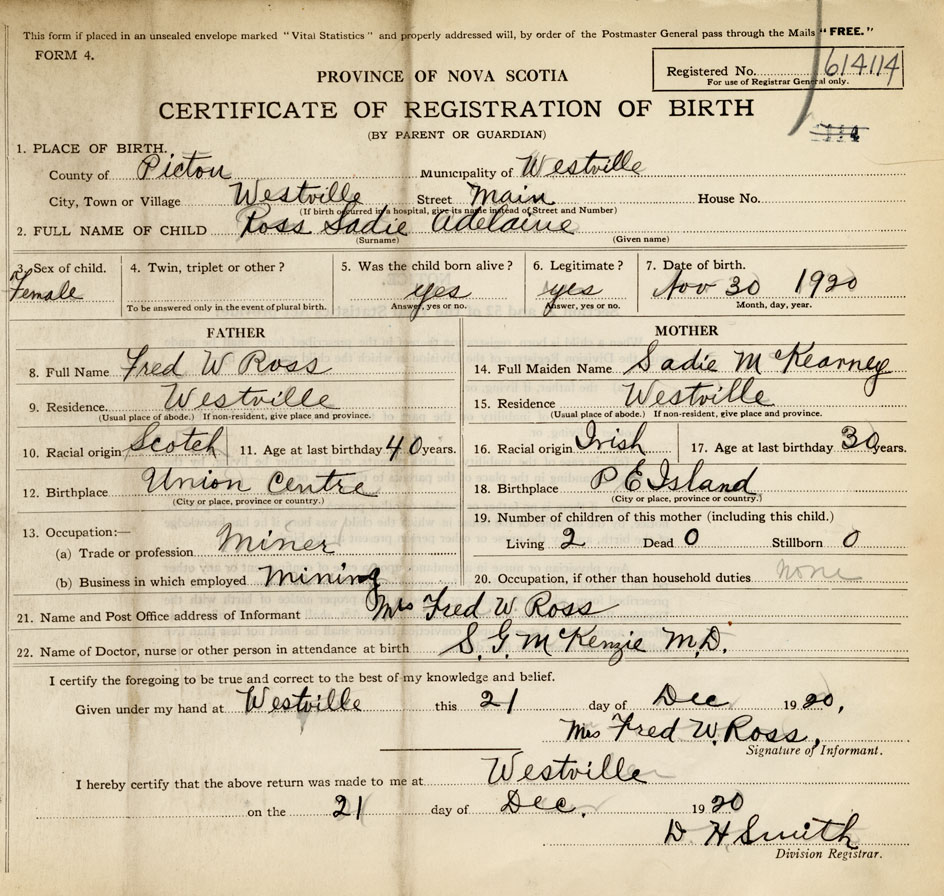 This form if placed in an unsealed envelope marked "Vital Statistics" and properly addressed will, by order of the Postmaster General pass through the Mails "FREE."
FORM 4.
Registered No. 614114
For use of Registrar General only.
PROVINCE OF NOVA SCOTIA
CERTIFICATE OF REGISTRATION OF BIRTH
(BY PARENT OR GUARDIAN)
114
1. PLACE OF BIRTH.
County of Pictou Municipality of Westville
City, Town or Village Westville Street Main House No.
(If birth occurred in a hospital, give its name instead of Street and Number)
2. FULL NAME OF CHILD Ross Sadie Adelaine
(Surname) (Given name)
3. Sex of child. 4. Twin, triplet or other? 5. Was the child born alive? 6. Legitimate? 7. Date of birth.
Female yes yes Nov 30 1920
To be answered only in the event of plural birth. Answer, yes or no. Answer, yes or no. Month, day, year.
FATHER
8. Full Name Fred W Ross
9. Residence Westville
(Usual place of abode.) If non-resident, give place and province.
10. Racial origin Scotch 11. Age at last birthday 40 years.
12. Birthplace Union Centre
(City or place, province or country.)
13. Occupation:—
(a) Trade or profession Miner
(b) Business in which employed Mining
MOTHER
14. Full Maiden Name Sadie McKearney
15. Residence Westville
(Usual place of abode.) If non-resident, give place and province.
16. Racial origin Irish 17. Age at last birthday 30 years.
18. Birthplace P E Island
(City or place, province or country.)
19. Number of children of this mother (including this child.)
Living 2 Dead 0 Stillborn 0
20. Occupation, if other than household duties none
21. Name and Post Office address of Informant Mrs Fred W Ross
22. Name of Doctor, nurse or other person in attendance at birth S. G. McKenzie M.D.
I certify the foregoing to be true and correct to the best of my knowledge and belief.
Given under my hand at Westville this 21 day of Dec 1920,
Mrs Fred W. Ross,
Signature of Informant.
I hereby certify that the above return was made to me at Westville
on the 21 day of Dec. 1920
D. H Smith
Division Registrar.